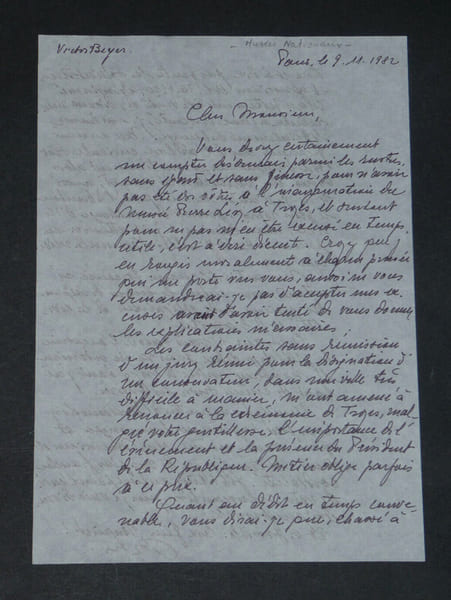 Victor Beyer
- Musées Nationaux -
Paris, le 9. 11. 1982
Cher Monsieur,
Vous devez certainement
me compter désormais parmi les rustres
sans et sans, pour n'avoir
pas été des vôtres à l'inauguration du
Musée Pierre Lévy à Troyes, et surtout
pour ne pas m'en être excusé en temps
utile, c'est à dire avant. Croyez que j'
en rougis moralement à chaque pensée
qui me porte vers vous, aussi ne vous
demanderai-je pas d'accepter mes ex-
cuses avant d'avoir tenté de vous donner
les explications nécessaires.
Les contraintes sans rémission
d'un jury réuni pour la désignation d'
un conservateur, dans une ville très
difficile à manier, m'ont amené à
renoncer à la cérémonie de Troyes, mal-
gré votre gentillesse, l'importance de l'
événement et la présence du Président
de la République. Métier oblige parfois
à ce prix.
Quant au dédit en temps conve-
nable, vous dirai-je que, chassé à